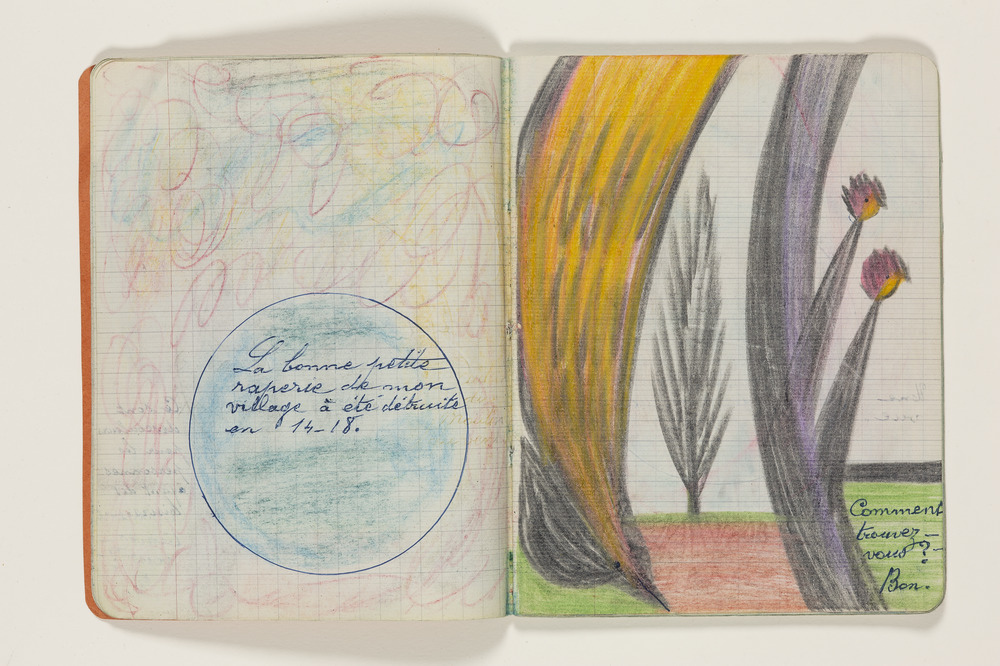 La bonne petite
raperie de mon
village à été détruite
en 14-18.
Comment
trouvez-
vous?-
Bon.